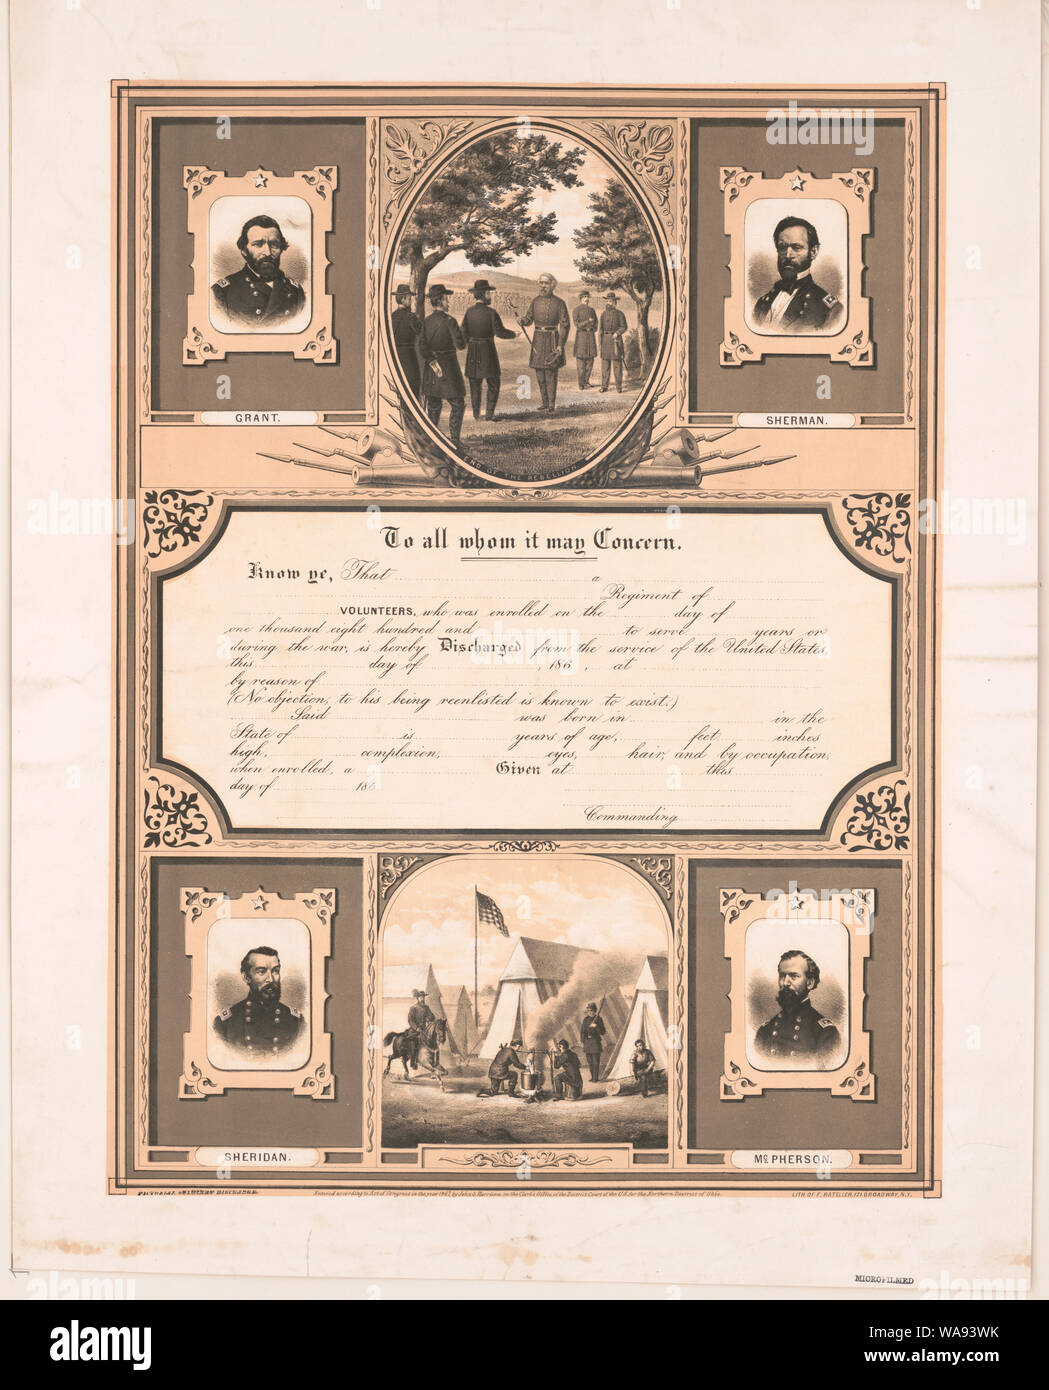 GRANT.
SHERMAN.
END OF THE REBELLION
To all whom it may Concern.
Know ye, That a
Regiment of
VOLUNTEERS, who was enrolled on the day of
one thousand eight hundred and to serve years or
during the war, is hereby Discharged from the service of the United States,
this day of , 186 , at
by reason of
(No objection, to his being reenlisted is known to exist.)
Said was born in in the
State of is years of age, feet inches
high, complexion, eyes, hair, and by occupation,
when enrolled, a Given at this
day of 186
Commanding
SHERIDAN.
Mc PHERSON.
PICTORIAL SOLDIERS DISCHARGE.
Entered according to Act of Congress in the year 1867, by John G. Harrison, in the Clerk's Office of the District Court of the U.S. for the Northern District of Ohio.
LITH. OF F. RATELLER, 171 BROADWAY, N.Y.
MICROFILMED
alamy
Image ID: WA93WK
www.alamy.com